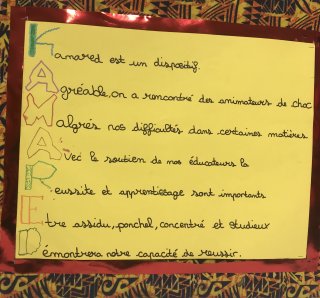 Kamared est un dispositif.
Agréable, on a rencontré des animateurs de choc
Malgrés nos difficultés dans certaines matières
Avec le soutien de nos éducateurs la
Reussite et apprentissage sont importants
Etre assidu, ponctuel, concentré et studieux
Démontrera notre capacité de reussir.